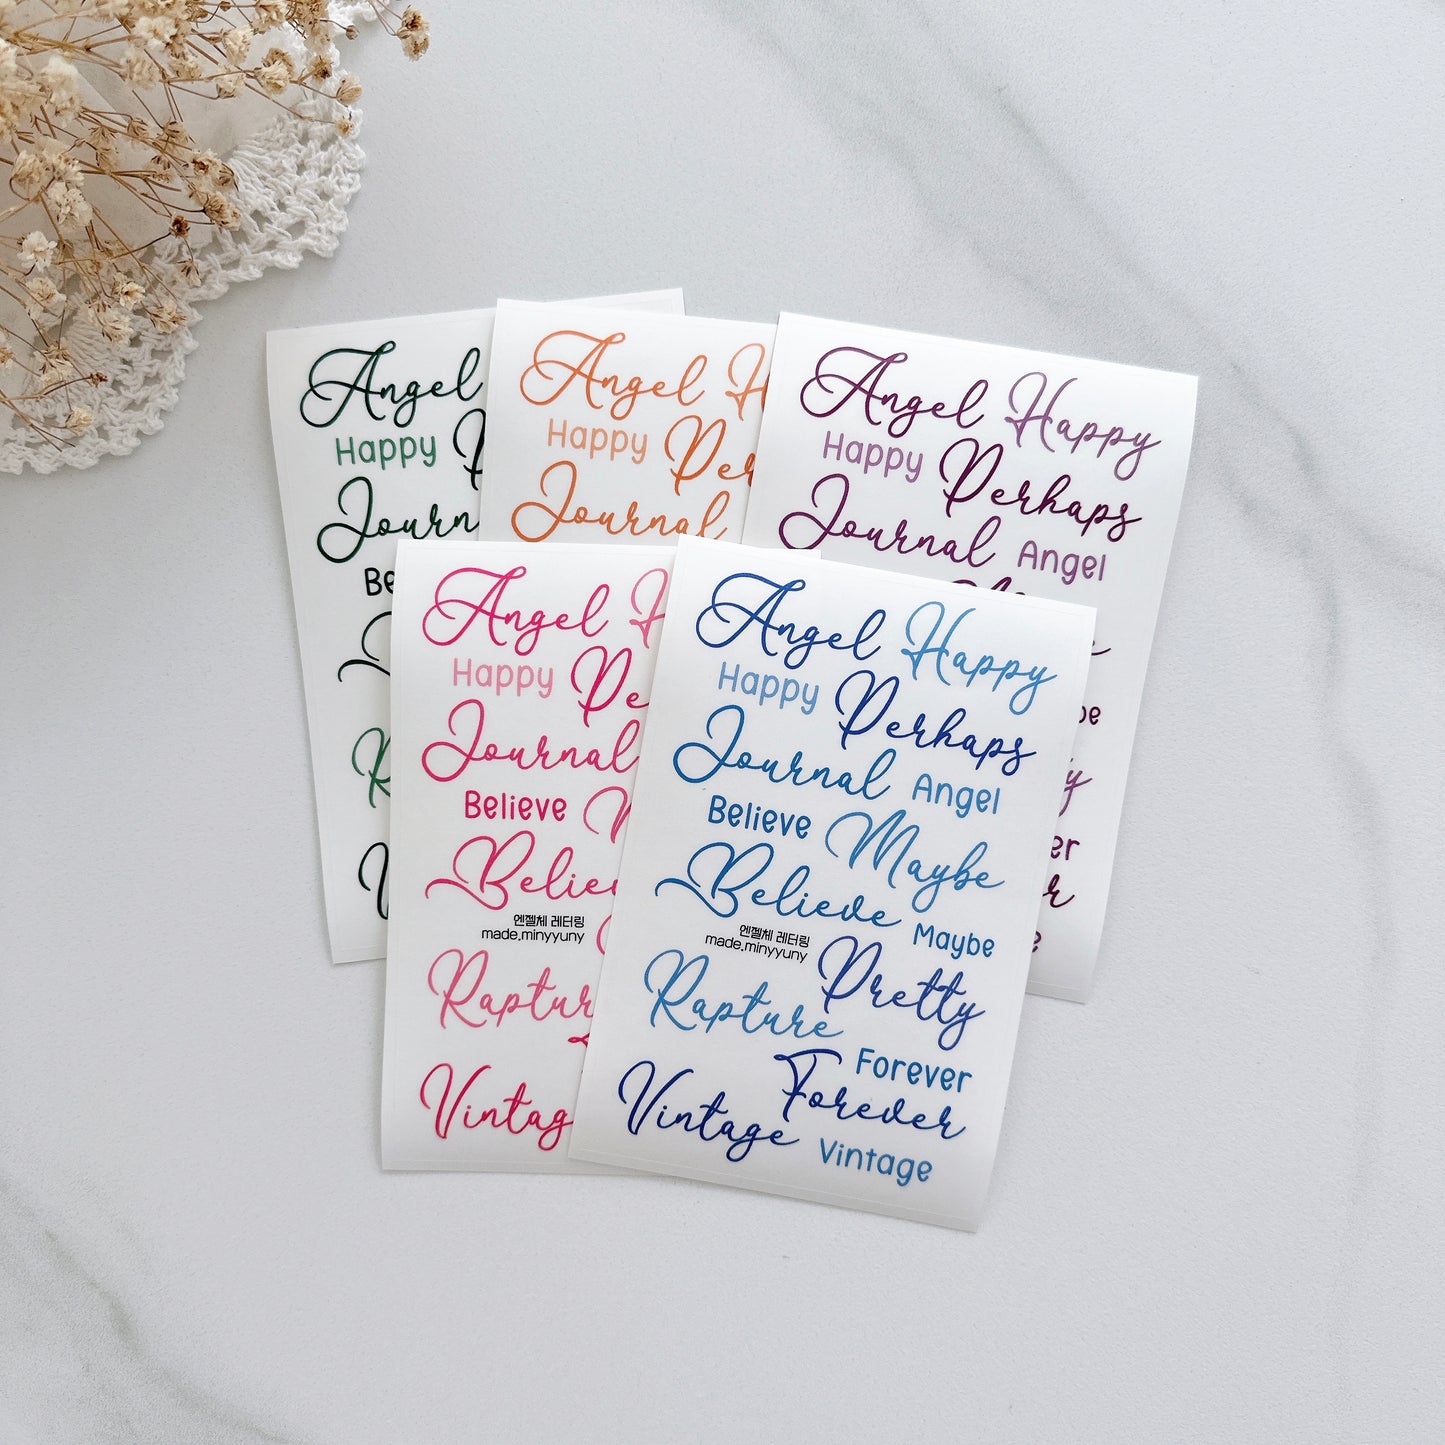 Angel
Happy
Journ
Be
Angel H
Happy Per
Journal
Angel Happy
Happy Perhaps
Journal Angel
be
y
er
r
e
Angel H
Happy Pe
Journal
Believe
Belie
엔젤체 레터링
made.minyyuny
Raptur
Vintag
Angel Happy
Happy Perhaps
Journal Angel
Believe Maybe
Believe Maybe
엔젤체 레터링
made.minyyuny
Pretty
Rapture
Forever
Forever
Vintage Vintage